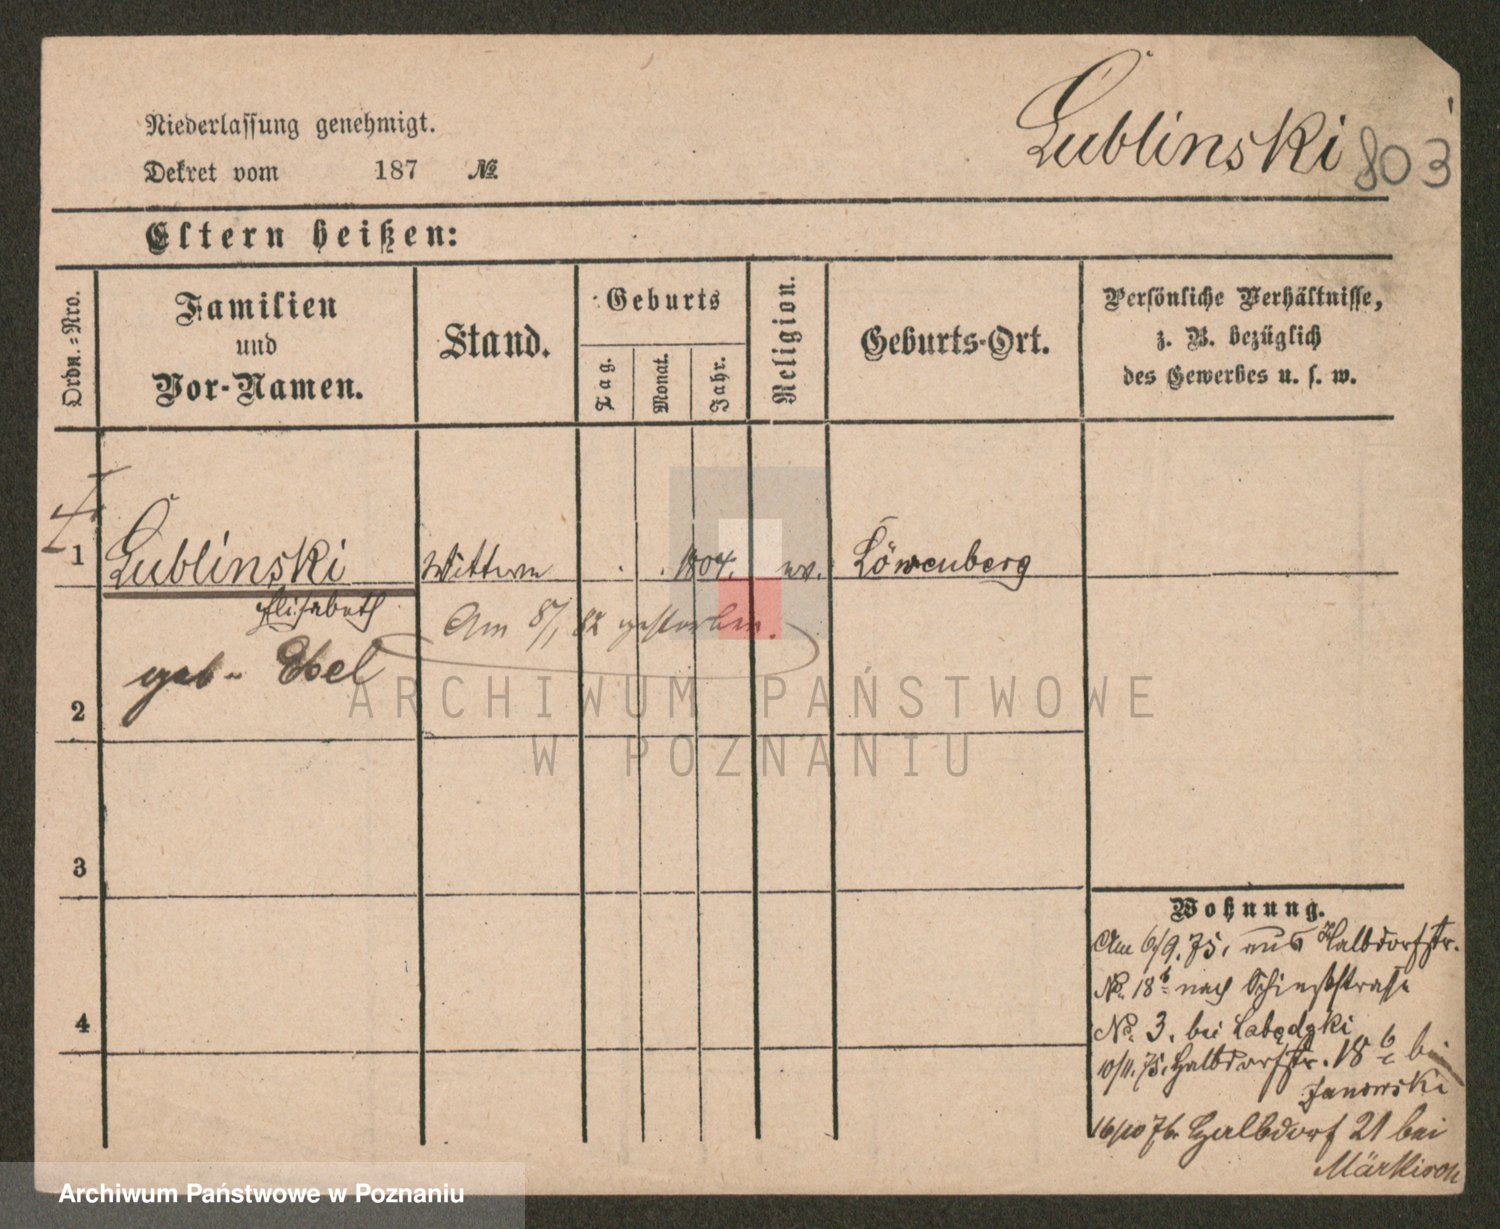 Lublinski 803
Niederlassung genehmigt.
Dekret vom 187 №
Eltern heißen:
Ordn.=Nro.
Familien
und
Vor-Namen.
Stand.
Geburts
Tag.
Monat.
Jahr.
Religion.
Geburts-Ort.
Persönliche Verhältnisse,
z. B. bezüglich
des Gewerbes u. s. w.
1 Lublinski Wittwe 1804. ev. Löwenberg
Elisabeth
Am 8/1 82 gestorben.
geb. Ebel
2
3
4
Wohnung.
Am 6/9. 75. aus Halbdorfstr.
№ 18b nach Schießstraße
№ 3. bei
10/11. 75. Halbdorfstr. 18 b bei
Janowski
16/10 76 Halbdorf 21 bei
ARCHIWUM PAŃSTWOWE
W POZNANIU
Archiwum Państwowe w Poznaniu